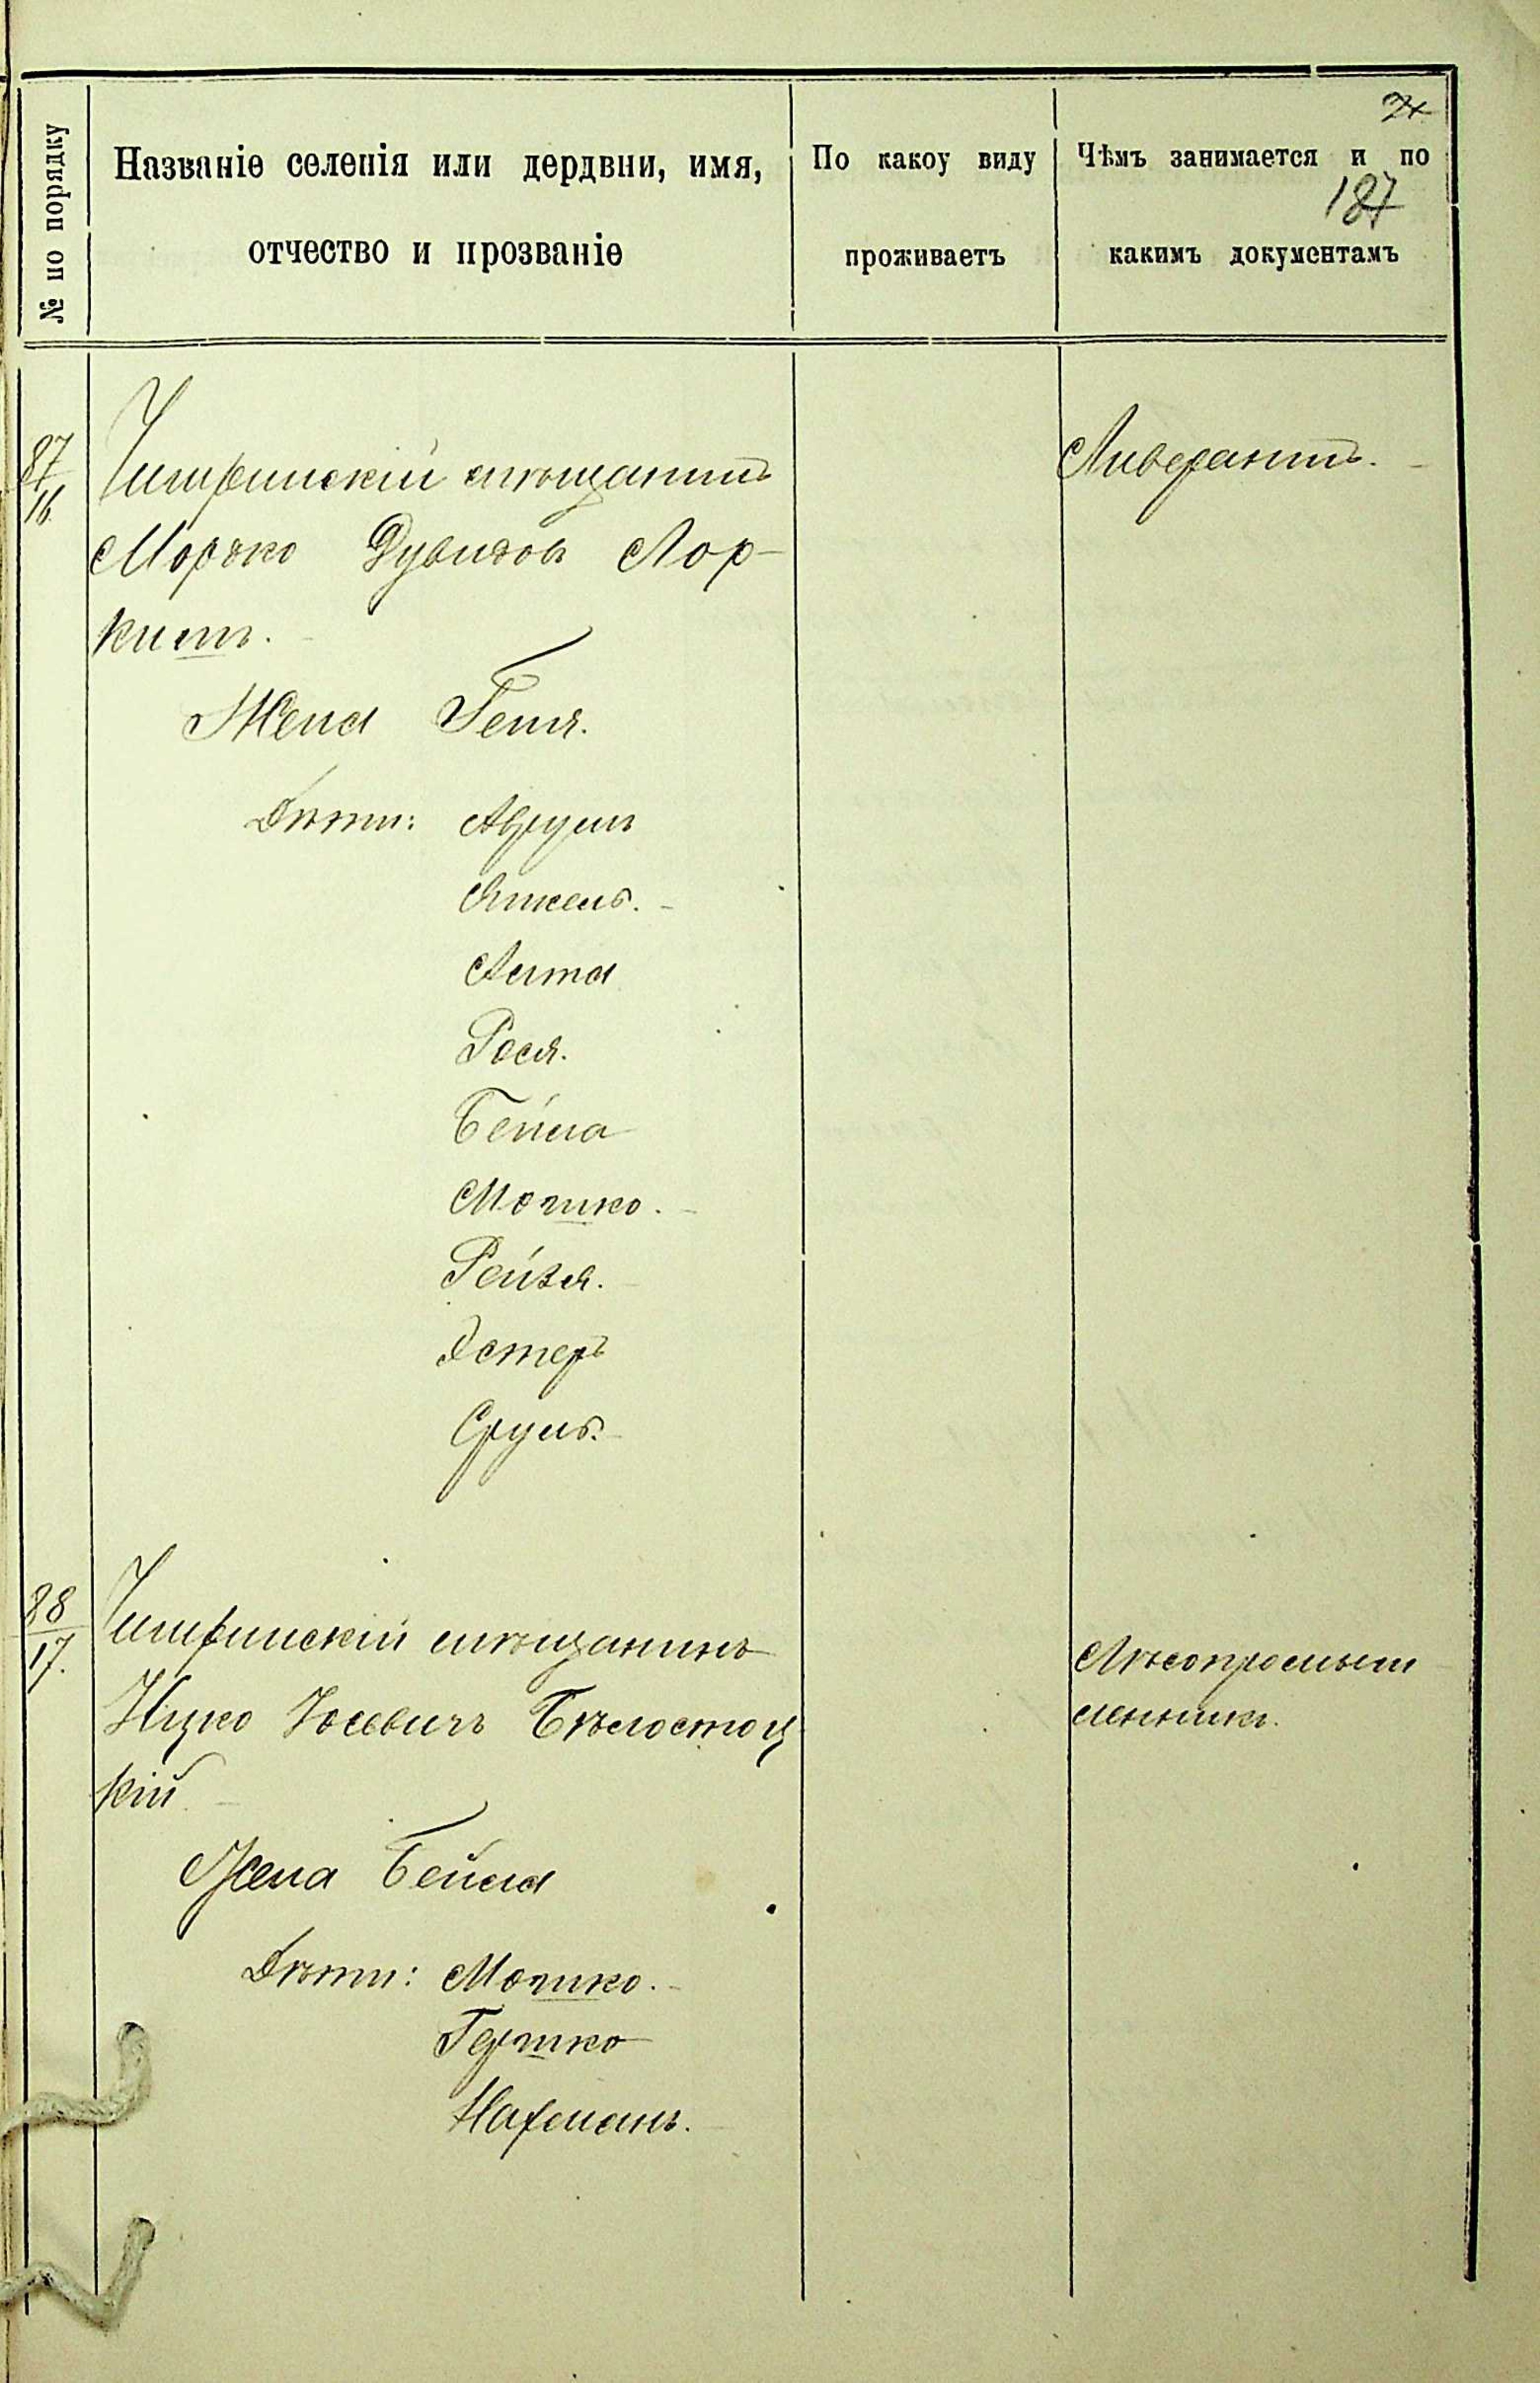 № по порядку
Названіе селенія или дердвни, имя,
отчество и прозваніе
По какоу виду
проживаетъ
Чѣмъ занимается и по
какимъ документамъ
187
87
16
Чигиринскій мѣщанинъ
Морко Дувидов Лор-
Жена Геня.
Дѣти: Аврумъ
Янкель.
Рося.
Бейла
Мошко.
Рейзя.
Эстеръ
Сруль.
Ливерантъ.
88
17.
Чигиринскій мѣщанинъ
Ицко Іосьвичъ Бѣлостоц
кій
Жена Бейла
Дѣти: Мошко.
Гершко
Нахманъ.
Лѣсопромыш
ленникъ.